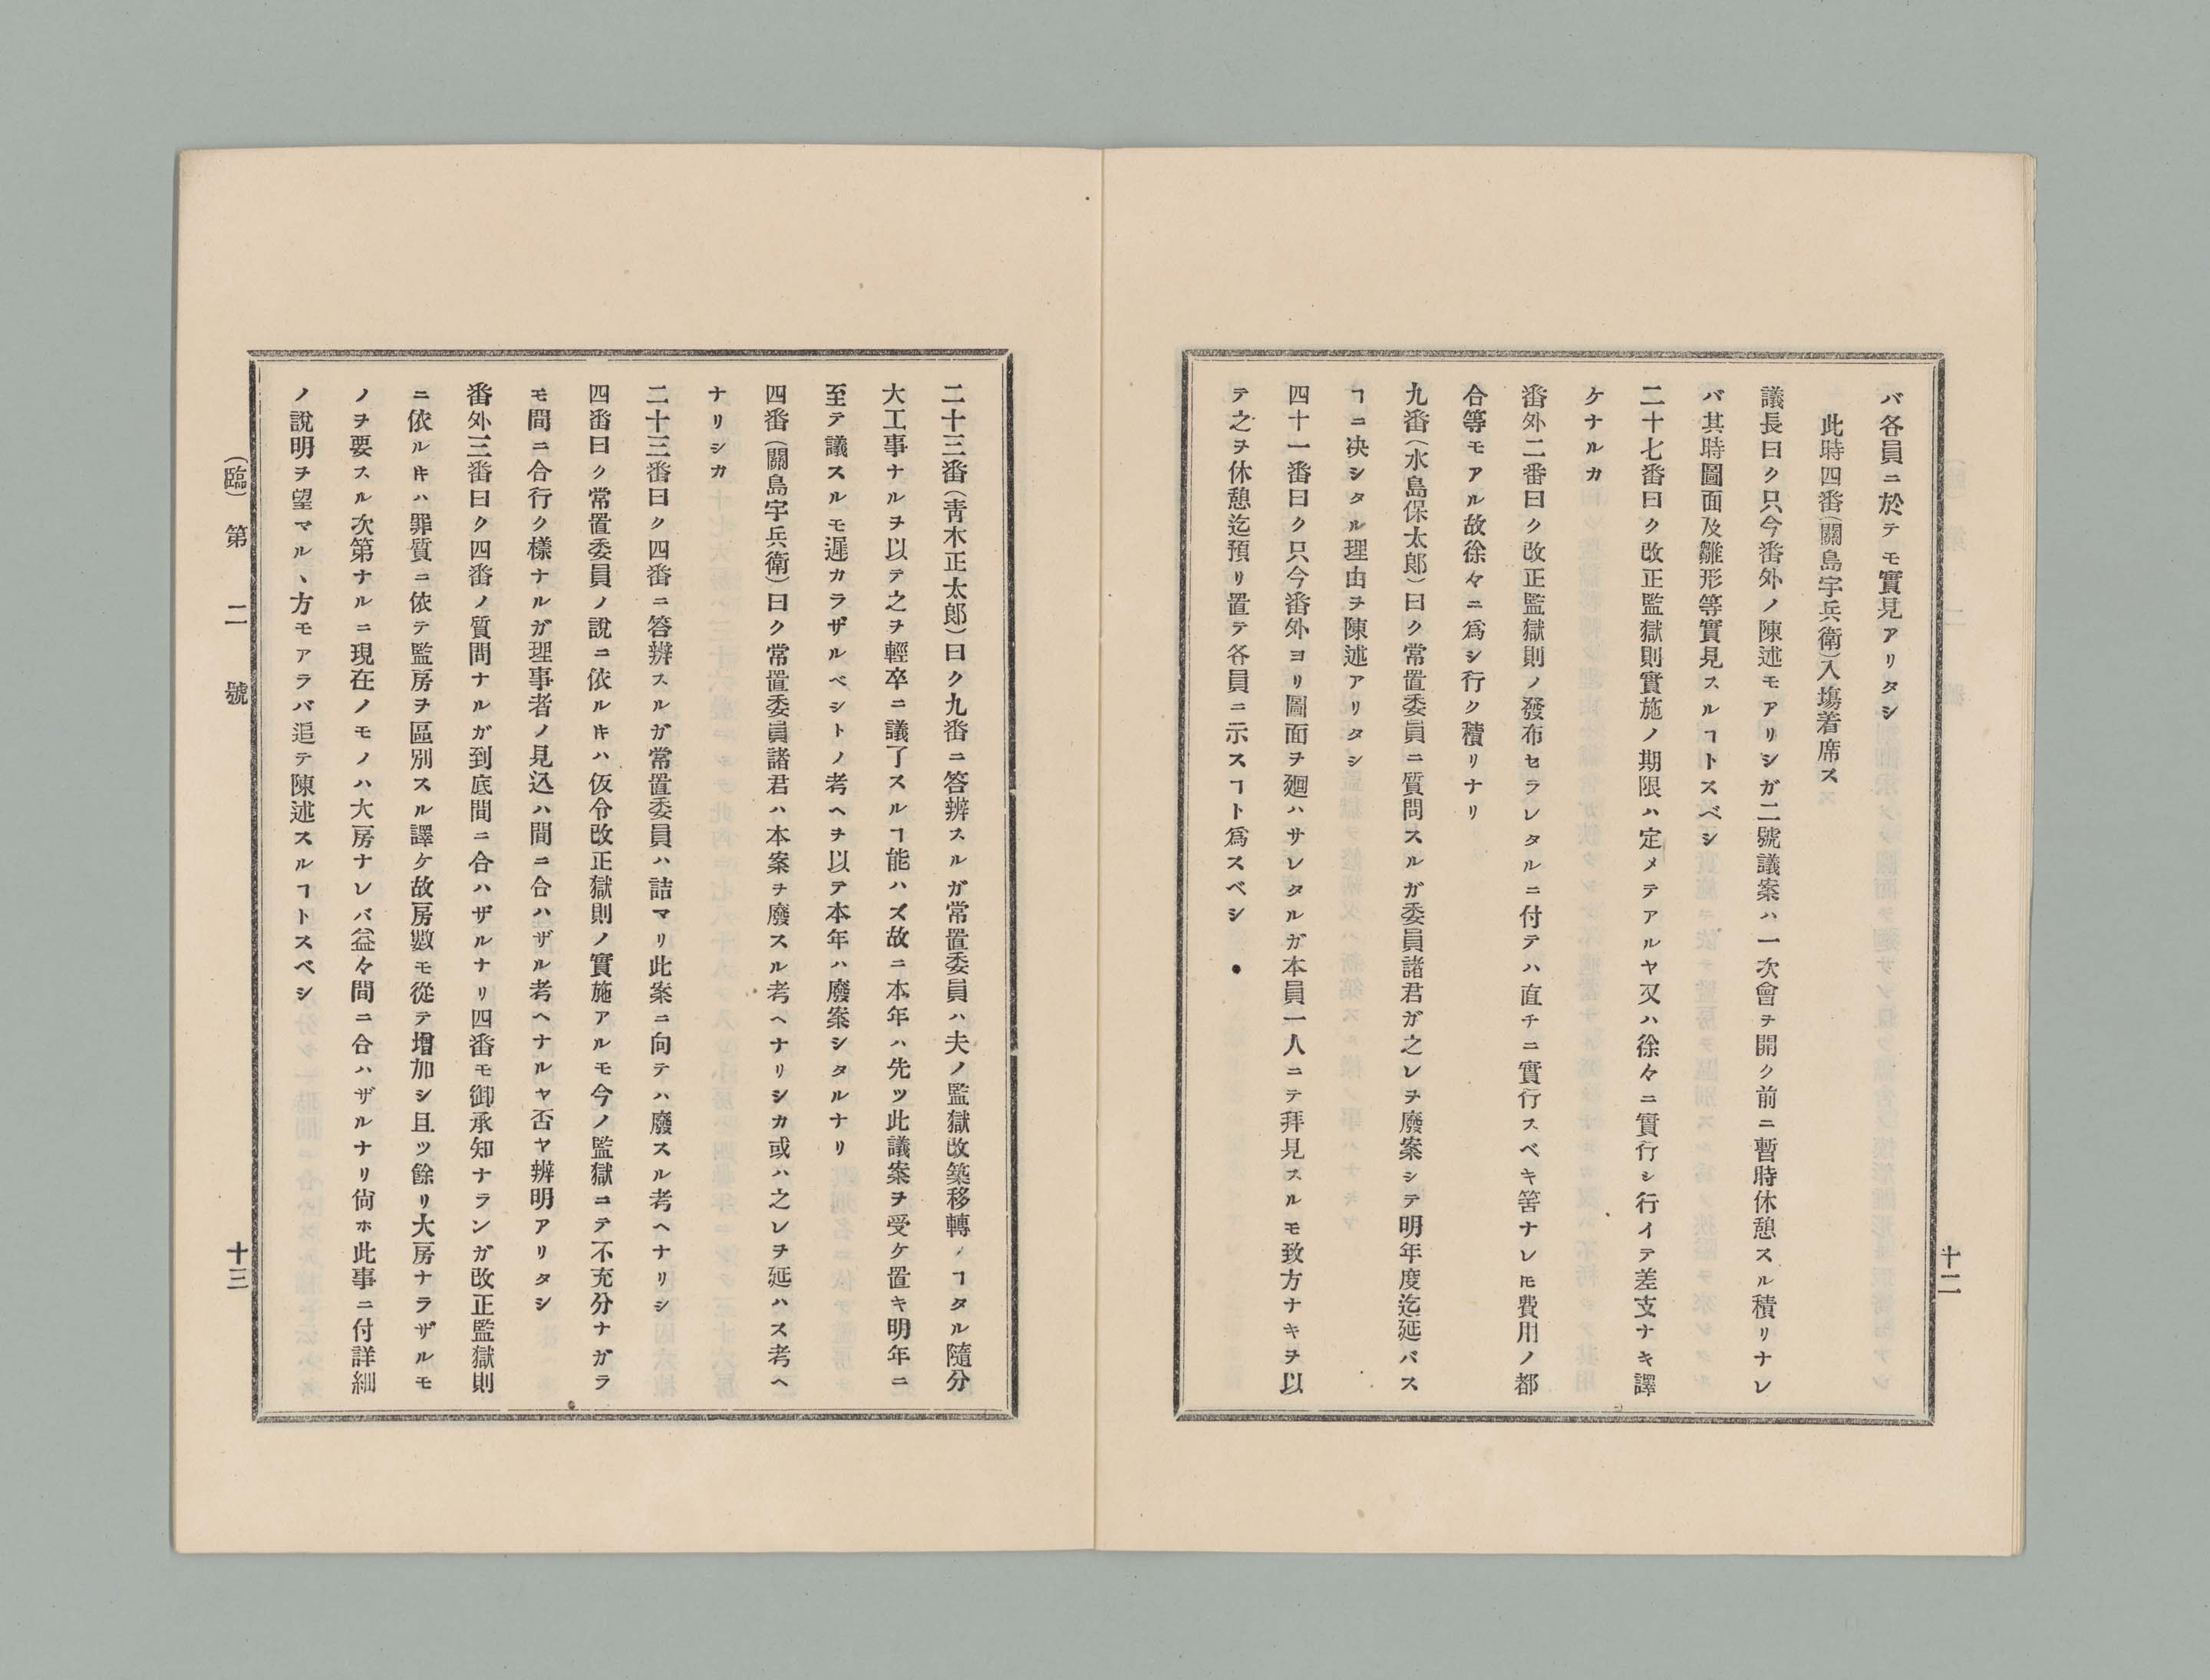 十二
バ各員ニ於テモ實見アリタシ
此時四番(關島宇兵衛)入塲着席ス
議長曰ク只今番外ノ陳述モアリシガ二號議案ハ一次會ヲ開ク前ニ暫時休憩スル積リナレ
バ其時圖面及雛形等實見スルヿトスベシ
二十七番曰ク改正監獄則實施ノ期限ハ定メテアルヤ又ハ徐々ニ實行シ行イテ差支ナキ譯
ケナルカ
番外二番曰ク改正監獄則ノ發布セラレタルニ付テハ直チニ實行スベキ筈ナレ𪜈費用ノ都
合等モアル故徐々ニ爲シ行ク積リナリ
九番(水島保太郎)曰ク常置委員ニ質問スルガ委員諸君ガ之レヲ廢案シテ明年度迄延バス
ヿニ决シタル理由ヲ陳述アリタシ
四十一番曰ク只今番外ヨリ圖面ヲ廻ハサレタルガ本員一人ニテ拜見スルモ致方ナキヲ以
テ之ヲ休憩迄預リ置テ各員ニ示スヿト爲スベシ
二十三番(靑木正太郎)曰ク九番ニ答辨スルガ常置委員ハ夫ノ監獄改築移轉ノヿタル隨分
大工事ナルヲ以テ之ヲ輕卒ニ議了スルヿ能ハズ故ニ本年ハ先ツ此議案ヲ受ケ置キ明年ニ
至テ議スルモ遲カラザルベシトノ考ヘヲ以テ本年ハ廢案シタルナリ
四番(關島宇兵衛)曰ク常置委員諸君ハ本案ヲ廢スル考ヘナリシカ或ハ之レヲ延ハス考ヘ
ナリシカ
二十三番曰ク四番ニ答辨スルガ常置委員ハ詰マリ此案ニ向テハ廢スル考ヘナリシ
四番曰ク常置委員ノ說ニ依ルヰハ仮令改正獄則ノ實施アルモ今ノ監獄ニテ不充分ナガラ
モ間ニ合行ク樣ナルガ理事者ノ見込ハ間ニ合ハザル考ヘナルヤ否ヤ辨明アリタシ
番外三番曰ク四番ノ質問ナルガ到底間ニ合ハザルナリ四番モ御承知ナランガ改正監獄則
ニ依ルヰハ罪質ニ依テ監房ヲ區別スル譯ケ故房數モ從テ增加シ且ツ餘リ大房ナラザルモ
ノヲ要スル次第ナルニ現在ノモノハ大房ナレバ益々間ニ合ハザルナリ尙ホ此事ニ付詳細
ノ說明ヲ望マルヽ方モアラバ追テ陳述スルヿトスベシ
(臨)第二號
十三